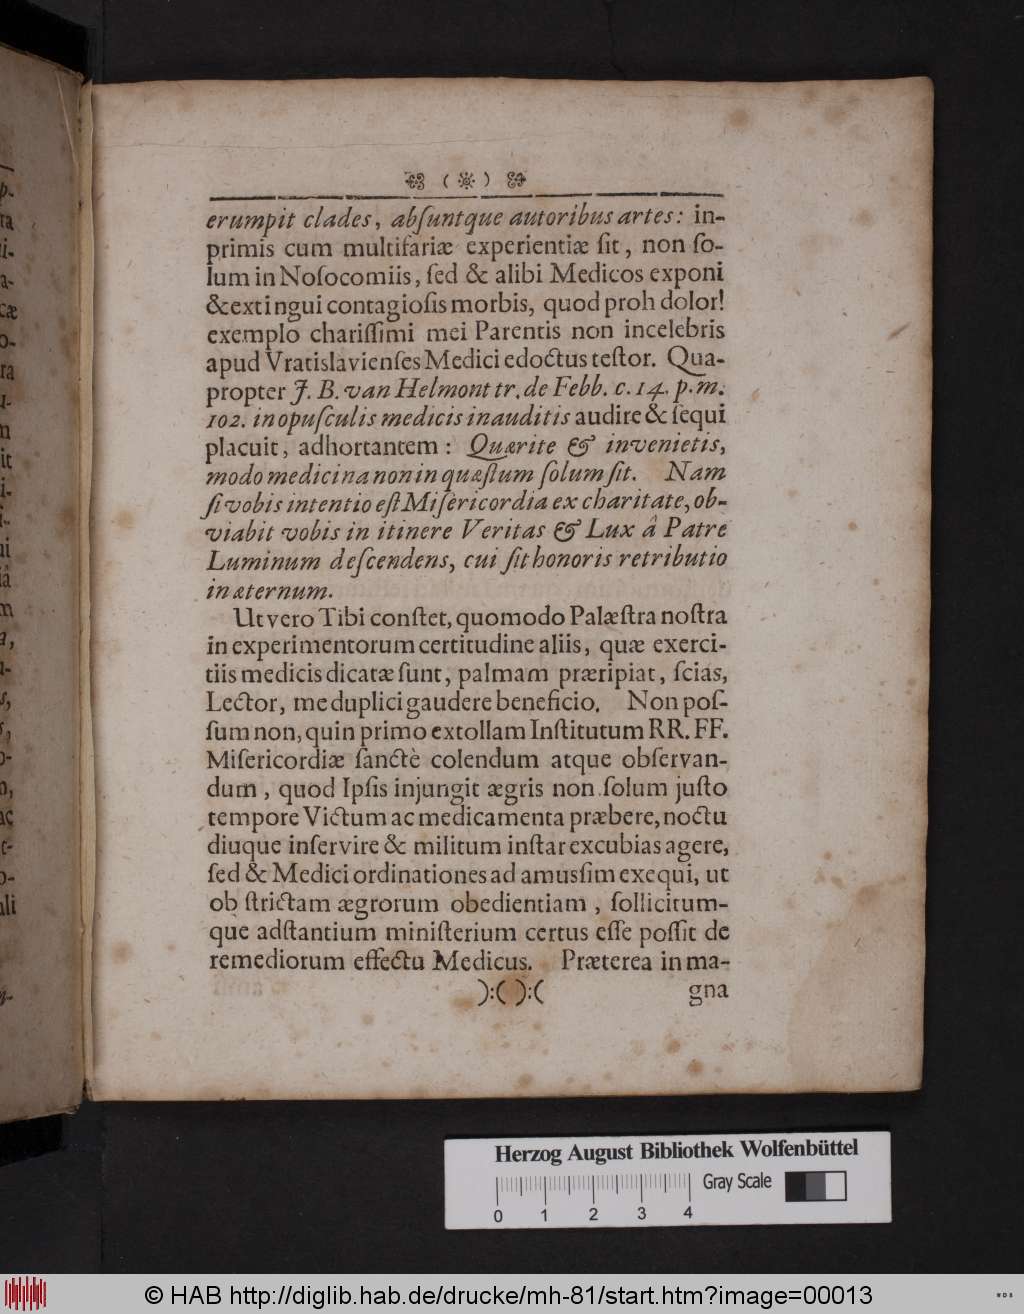 ( )
erumpit clades, abſuntque autoribus artes: in-
primis cum multifariæ experientiæ ſit, non ſo-
lum in Noſocomiis, ſed & alibi Medicos exponi
& extingui contagioſis morbis, quod proh dolor!
exemplo chariſſimi mei Parentis non incelebris
apud Vratislavienſes Medici edoctus teſtor. Qua-
propter J. B. van Helmont tr. de Febb. c. 14. p. m.
102. in opuſculis medicis inauditis audire & ſequi
placuit, adhortantem: Quærite & invenietis,
modo medicina non in quæſtum ſolum ſit. Nam
ſi vobis intentio eſt Miſericordia ex charitate, ob-
viabit vobis in itinere Veritas & Lux â Patre
Luminum deſcendens, cui ſit honoris retributio
in æternum.
Ut vero Tibi conſtet, quomodo Palæſtra noſtra
in experimentorum certitudine aliis, quæ exerci-
tiis medicis dicatæ ſunt, palmam præripiat, ſcias,
Lector, me duplici gaudere beneficio. Non poſ-
ſum non, quin primo extollam Inſtitutum RR. FF.
Miſericordiæ ſanctè colendum atque obſervan-
dum, quod Ipſis injungit ægris non ſolum juſto
tempore Victum ac medicamenta præbere, noctu
diuque inſervire & militum inſtar excubias agere,
ſed & Medici ordinationes ad amusſim exequi, ut
ob ſtrictam ægrorum obedientiam, ſollicitum-
que adſtantium miniſterium certus eſſe poſſit de
remediorum effectu Medicus. Præterea in ma-
):( ):( gna
Herzog August Bibliothek Wolfenbüttel
Gray Scale
0 1 2 3 4
© HAB http://diglib.hab.de/drucke/mh-81/start.htm?image=00013